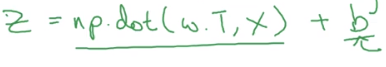 z = np.dot(w.T, X) + b